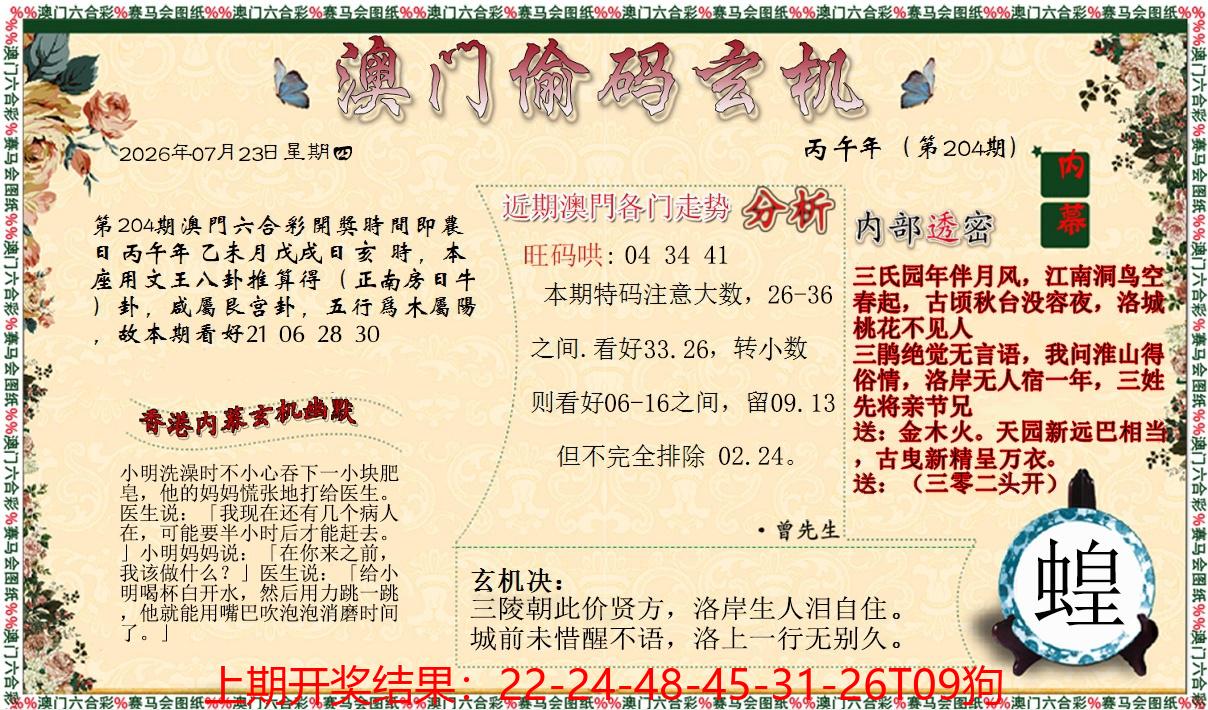 %%澳门六合彩%赛马会图纸%%澳门六合彩%赛马会图纸%%澳门六合彩%赛马会图纸%%澳门六合彩%赛马会图纸%%澳门六合彩%赛马会图纸%%澳门六合彩%赛马会图纸%%
澳门偷码玄机
2026年07月23日星期四
丙午年（第204期）
内
幕
第204期澳門六合彩開獎時間即農
日丙午年乙未月戊戌日亥 時，本
座用文王八卦推算得（正南房日牛
）卦，咸屬艮宫卦，五行爲木屬陽
，故本期看好21 06 28 30
香港内幕玄机幽默
小明洗澡时不小心吞下一小块肥
皂，他的妈妈慌张地打给医生。
医生说：「我现在还有几个病人
在，可能要半小时后才能赶去。
」小明妈妈说：「在你来之前，
我该做什么？」医生说：「给小
明喝杯白开水，然后用力跳一跳
，他就能用嘴巴吹泡泡消磨时间
了。」
近期澳門各门走势 分析
旺码哄: 04 34 41
本期特码注意大数，26-36
之间.看好33.26，转小数
则看好06-16之间，留09.13
但不完全排除 02.24。
·曾先生
内部透密
三氏园年伴月风，江南洞鸟空
春起，古顷秋台没容夜，洛城
桃花不见人
三鹃绝觉无言语，我问淮山得
俗情，洛岸无人宿一年，三姓
先将亲节兄
送：金木火。天园新远巴相当
，古曳新精呈万衣。
送：（三零二头开）
玄机决：
三陵朝此价贤方，洛岸生人泪自住。
城前未惜醒不语，洛上一行无别久。
蝗
上期开奖结果：22-24-48-45-31-26T09狗